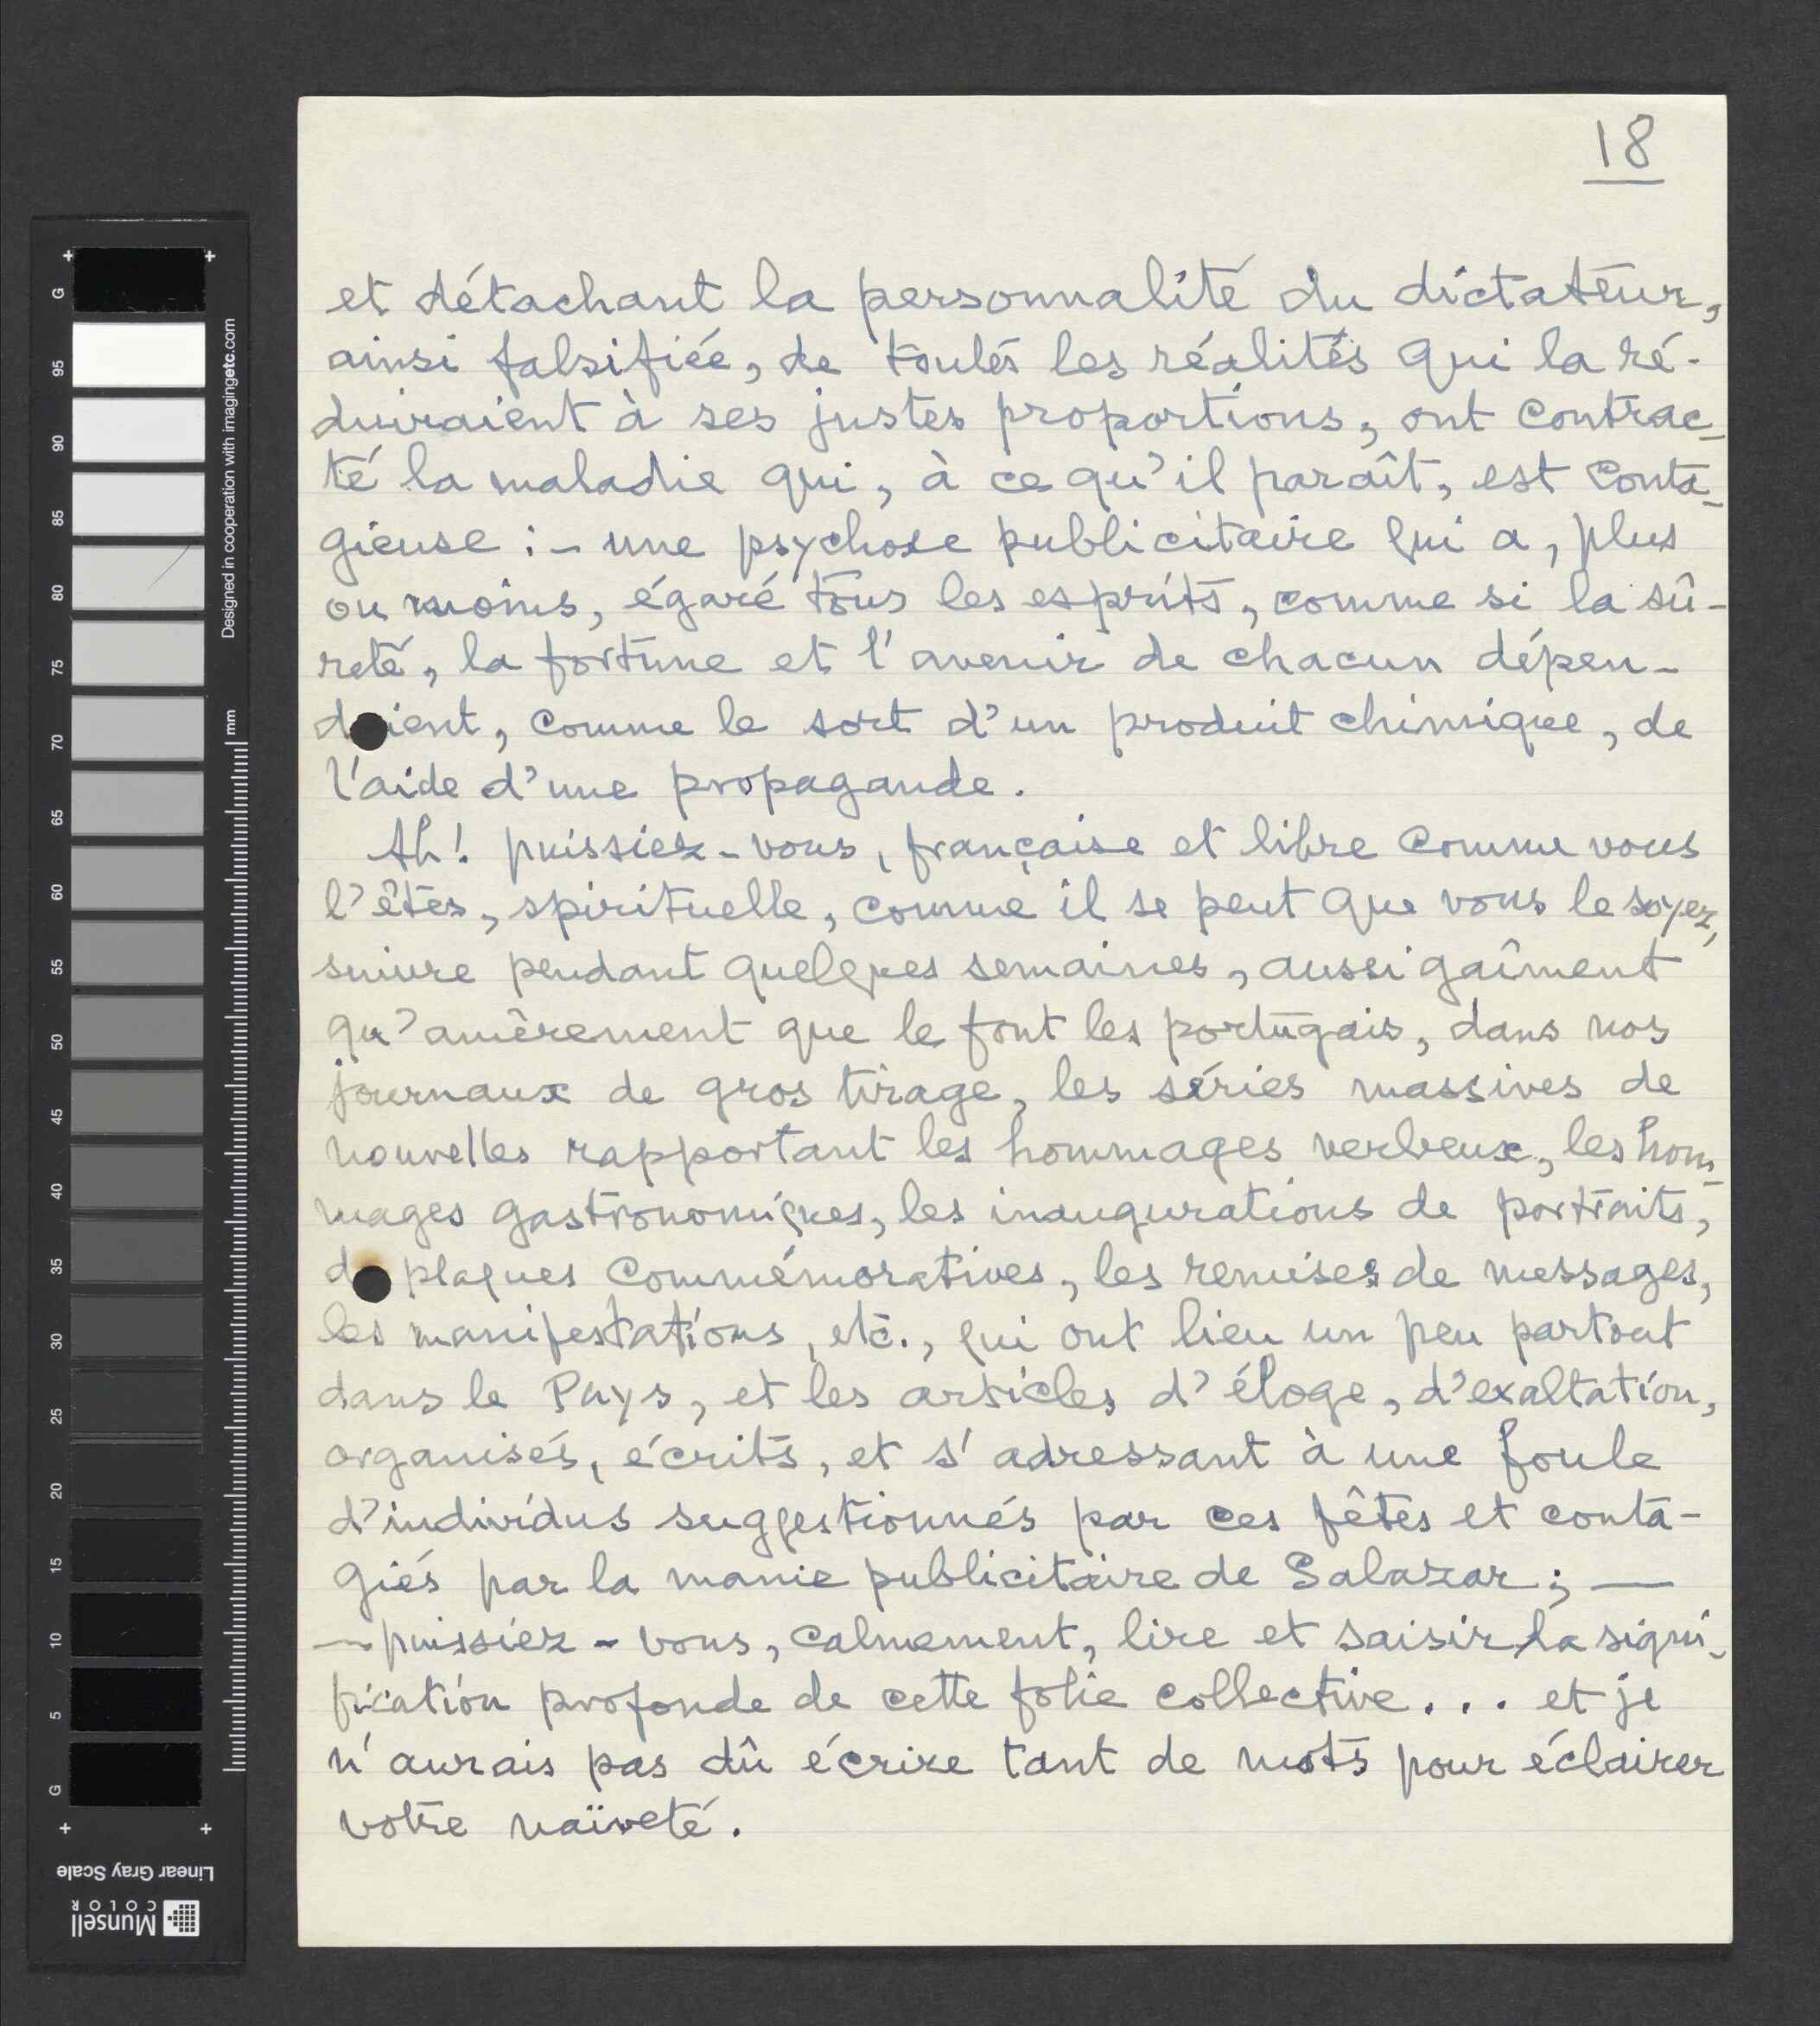 18
et détachant la personnalité du dictateur,
ainsi falsifiée, de toutes les réalités qui la ré-
duiraient à ses justes proportions, ont contrac-
té la maladie qui, à ce qu'il paraît, est conta-
gieuse : - une psychose publicitaire qui a, plus
ou moins, égaré tous les esprits, comme si la sû-
reté, la fortune et l'avenir de chacun dépen-
d ient, comme le sort d'un produit chimique, de
l'aide d'une propagande.
Ah! puissiez-vous, française et libre comme vous
l'êtes, spirituelle, comme il se peut que vous le soyez,
suivre pendant quelques semaines, aussi gaîment
qu'amèrement que le font les portugais, dans nos
journaux de gros tirage, les séries massives de
nouvelles rapportant les hommages verbeux, les hom-
mages gastronomiques, les inaugurations de portraits,
d plaques commémoratives, les remises de messages,
les manifestations, etc., qui ont lieu un peu partout
dans le Pays, et les articles d'éloge, d'exaltation,
organisés, écrits, et s'adressant à une foule
d'individus suggestionnés par ces fêtes et conta-
giés par la manie publicitaire de Salazar; —
— puissiez-vous, calmement, lire et saisir la signi-
fication profonde de cette folie collective... et je
n'aurais pas dû écrire tant de mots pour éclairer
votre naïveté.
Designed in cooperation with imagingetc.com
mm
G
95
90
85
80
75
70
65
60
55
50
45
40
35
30
25
20
15
10
5
G
Linear Gray Scale
Munsell
COLOR